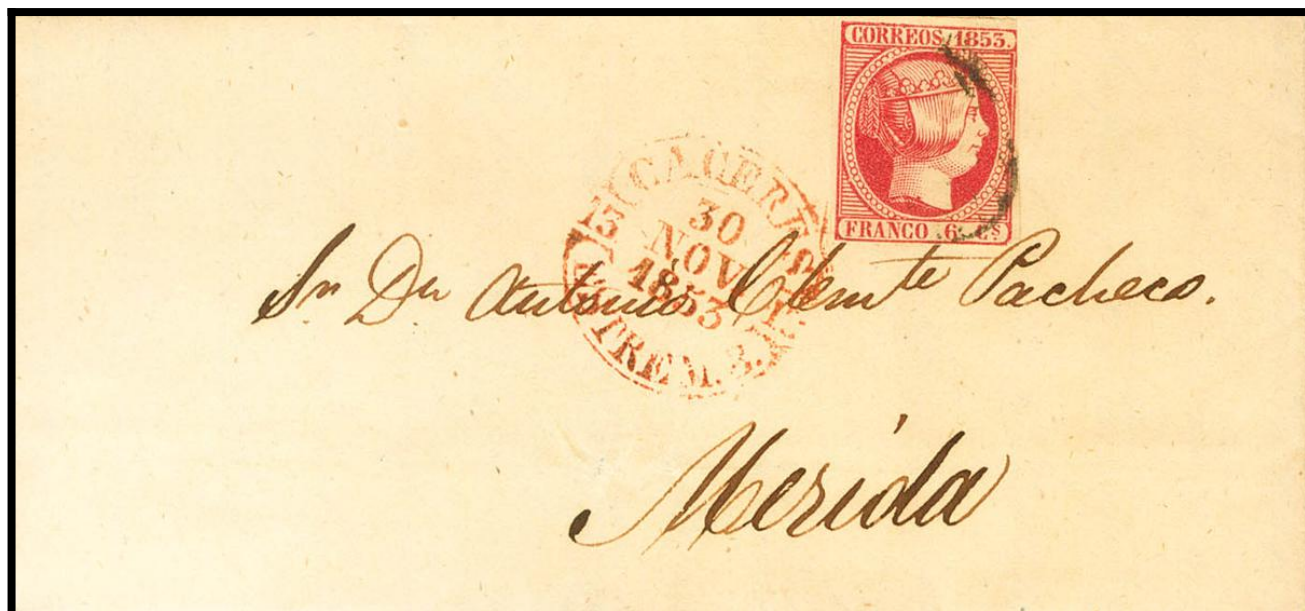 CORREOS 1853.
FRANCO 6 Cs
CACERES
30
NOV
1853
Sn Dn Antonio Clemte Pacheco.
Mérida